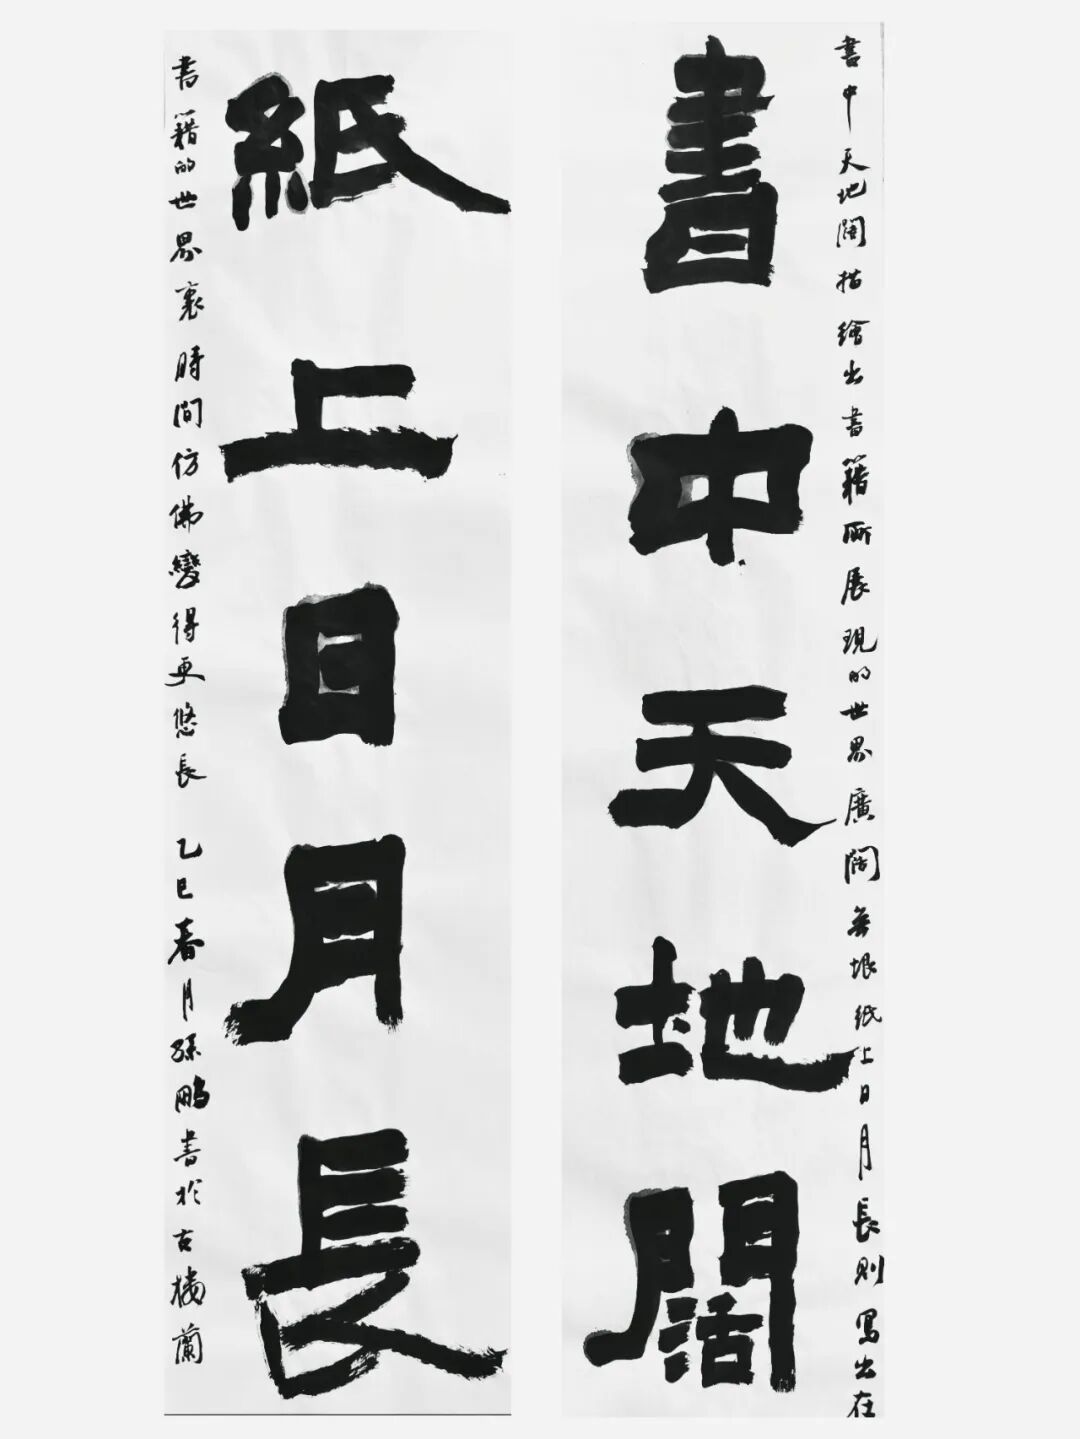 書中天地闊
書中天地闊描繪出書籍所展現的世界廣闊無垠紙上日月長則寫出在
紙上日月長
書籍的世界裏時間仿佛變得更悠長 乙巳春月孫鵬書於古樓蘭